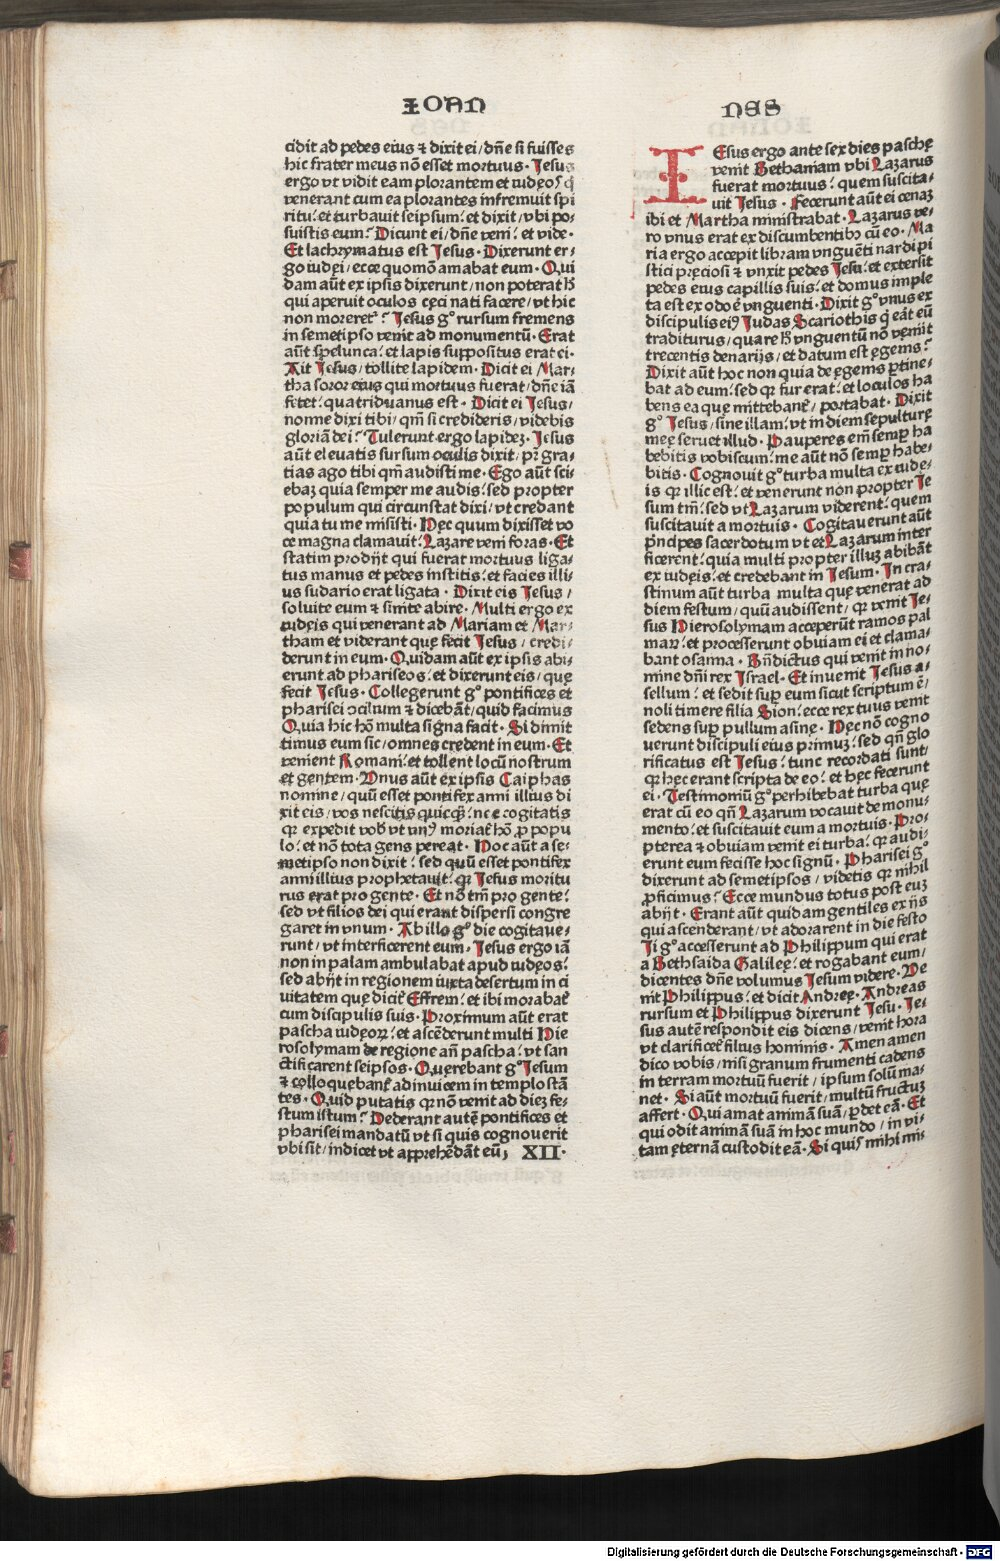 IOAN
cidit ad pedes eius ⁊ dixit ei/dñe si fuisses
hic frater meus nõ esset mortuus· Jesus
ergo vt vidit eam plorantem et iudeoſ q̃
venerant cum ea plorantes infremuit spi
ritu: et turbauit seipsum: et dixit/vbi po⸗
suistis eum? Dicunt ei/dñe veni: et vide·
Et lachrymatus est Jesus· Dixerunt er⸗
go iudęi/ecce quomõ amabat eum· Qui
dam aũt ex ipsis dixerunt/non poterat h̃
qui aperuit oculos cęci nati facere/vt hic
non moreret̃? Jesus gͦ rursum fremens
in semetipso venit ad monumentũ· Erat
aũt spelunca: et lapis suppositus erat ei·
Ait Jesus/tollite lapidem· Dicit ei Mar⸗
tha soror eius qui mortuus fuerat/dñe iã
fetet: quatriduanus est· Dicit ei Jesus/
nonne dixi tibi/qm̃ si credideris/videbis
gloriã dei? Tulerunt ergo lapidez· Jesus
aũt eleuatis sursum oculis dixit/pr̃ gra⸗
tias ago tibi qm̃ audisti me· Ego aũt sci⸗
ebaz quia semper me audis: sed propter
populum qui circunstat dixi/vt credant
quia tu me misisti· Hec quum dixisset vo
ce magna clamauit: Lazare veni foras· Et
statim prodijt qui fuerat mortuus liga⸗
tus manus et pedes institis: et facies illi⸗
us sudario erat ligata· Dixit eis Jesus/
soluite eum ⁊ sinite abire· Multi ergo ex
iudęis qui venerant ad Mariam et Mar⸗
tham et viderant quę fecit Jesus/credi⸗
derunt in eum· Quidam aũt ex ipsis abi⸗
erunt ad phariseos: et dixerunt eis/quę
fecit Jesus· Collegerunt gͦ pontifices et
pharisei ↄcilium ⁊ dicebãt/quid facimus
Quia hic hõ multa signa facit· Si dimit
timus eum sic/omnes credent in eum· Et
venient Romani: et tollent locũ nostrum
et gentem· Unus aũt ex ipsis Caiphas
nomine/quũ esset pontifex anni illius di
xit eis/vos nescitis quicq̃: nec cogitatis
qꝛ expedit vob̃ vt vnꝰ moriat̃ hõ ꝓ popu
lo: et nõ tota gens pereat· Hoc aũt a se⸗
metipso non dixit: sed quũ esset pontifex
anni illius prophetauit: qꝛ Jesus moritu
rus erat pro gente· Et nõ tm̃ pro gente:
sed vt filios dei qui erant dispersi congre
garet in vnum· Ab illo gͦ die cogitaue⸗
runt/vt interficerent eum· Jesus ergo iã
non in palam ambulabat apud iudęos:
sed abijt in regionem iuxta desertum in ci
uitatem quę dicit̃ Effrem: et ibi morabat̃
cum discipulis suis· Proximum aũt erat
pascha iudeoꝝ: et ascẽderunt multi Hie
rosolymam de regione añ pascha: vt san
ctificarent seipsos· Querebant gͦ Jesum
⁊ colloquebant̃ adinuicem in templo stã
tes· Quid putatis qꝛ nõ venit ad diez fe⸗
stum istum? Dederant autẽ pontifices et
pharisei mandatũ vt si quis cognouerit
vbi sit/indicet vt apprehẽdãt eũ; XII·
NES
IEsus ergo ante sex dies paschę
venit Bethaniam vbi Lazarus
fuerat mortuus: quem suscita⸗
uit Jesus· Fecerunt aũt ei cenaz
ibi et Martha ministrabat· Lazarus ve⸗
ro vnus erat ex discumbentibꝰ cũ eo· Ma
ria ergo accepit libram vnguẽti nardi pi
stici pręciosi ⁊ vnxit pedes Jesu: et extersit
pedes eius capillis suis: et domus imple
ta est ex odoẽ vnguenti· Dixit gͦ vnus ex
discipulis eiꝰ Judas Scariothis q̃ eãt eũ
traditurus/quare h̃ vnguentũ nõ venijt
trecentis denarijs/et datum est ęgenis?
Dixit aũt hoc non quia de ęgenis ꝑtine⸗
bat ad eum: sed qꝛ fur erat: et loculos ha
bens ea quę mittebant̃/portabat· Dixit
gͦ Jesus/sine illam: vt in diem sepulturę
meę seruet illud· Pauperes em̃ semꝑ ha
bebitis vobiscum: me aũt nõ semꝑ habe⸗
bitis· Cognouit gͦ turba multa ex iudę⸗
is qꝛ illic est: et venerunt non propter Je
sum tm̃: sed vt Lazarum viderent: quem
suscitauit a mortuis· Cogitauerunt aũt
pñcipes sacerdotum vt et Lazarum inter
ficerent: quia multi propter illuz abibãt
ex iudęis: et credebant in Jesum· In cra⸗
stinum aũt turba multa quę venerat ad
diem festum/quũ audissent/qꝛ venit Je⸗
sus Hierosolymam acceperũt ramos pal
maꝝ: et processerunt obuiam ei et clama⸗
bant osanna· Bñdictus qui venit in no⸗
mine dñi rex Israel· Et inuenit Jesus a⸗
sellum: et sedit supꝑ eum sicut scriptum ẽ/
noli timere filia Sion: ecce rex tuus venit
sedens supꝑ pullum asinę· Hec nõ cogno
uerunt discipuli eius primuz: sed qñ glo
rificatus est Jesus: tunc recordati sunt/
qꝛ hęc erant scripta de eo: et hęc fecerunt
ei· Testimoniũ gͦ perhibebat turba quę
erat cũ eo qñ Lazarum vocauit de monu⸗
mento: et suscitauit eum a mortuis· Pro⸗
pterea ⁊ obuiam venit ei turba: qꝛ audi⸗
erunt eum fecisse hoc signũ· Pharisei gͦ
dixerunt ad semetipsos/videtis qꝛ nihil
ꝓficimus? Ecce mundus totus post euz
abijt· Erant aũt quidam gentiles ex ijs
qui ascenderant/vt adorarent in die festo
Ii gͦ accesserunt ad Philippum qui erat
a Bethsaida Galileę: et rogabant eum/
dicentes dñe volumus Jesum videre· Ve
nit Philippus: et dicit Andreę· Andreas
rursum et Philippus dixerunt Jesu· Je⸗
sus autẽ respondit eis dicens/venit hora
vt clarificet̃ filius hominis· Amen amen
dico vobis/nisi granum frumenti cadens
in terram mortuũ fuerit/ipsum solũ ma⸗
net· Si aũt mortuũ fuerit/multũ fructuz
affert· Qui amat animã suã/ꝑdet eã· Et
qui odit animã suã in hoc mundo/in vi⸗
tam ęternã custodit eã· Si quis mihi mi⸗
Digitalisierung gefördert durch die Deutsche Forschungsgemeinschaft - DFG